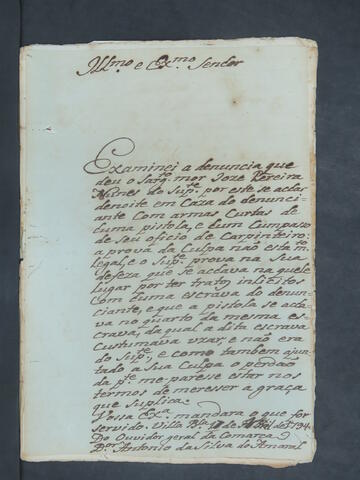 Illmo e Exmo Senhor
Examinei a denuncia que
deu o Sargto mor Joze Pereira
Nunes do Supte por este se achar
denoite em Caza do denunci-
ante Com armas Curtas de
huma pistola, e hum Cumpasso
de seu oficio de Carpinteiro:
a prova da Culpa não esta m.
legal, e o Supte prova na Sua
defeza que se achava na quele
lugar por ter tratos inliçitos
Com huma escrava do denun-
ciante, e que a pistola se acha-
va no quarto da mesma es-
crava, da qual a dita escrava
Custumava uzar, e não era
do Supte, e como tambem ajun-
tado a Sua Culpa o perdão
da pte me parese estar nos
termos de mereser a graça
que suplica.
Vossa Exa mandara o que for
servido. Villa Ra de Abril de 1794
Do Ouvidor geral da Comarca
Dor Antonio da Silva do Amaral